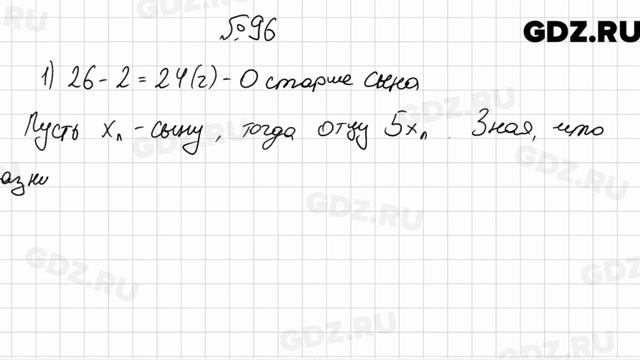 №96
GDZ.RU
1) 26 - 2 = 24 (г) - О старше сына
Пусть xл - сыну, тогда отцу 5xл. Зная, что
азни
GDZ.RU
GDZ.RU
GDZ.RU
GDZ.RU
GDZ.RU
GDZ.RU
GDZ.RU